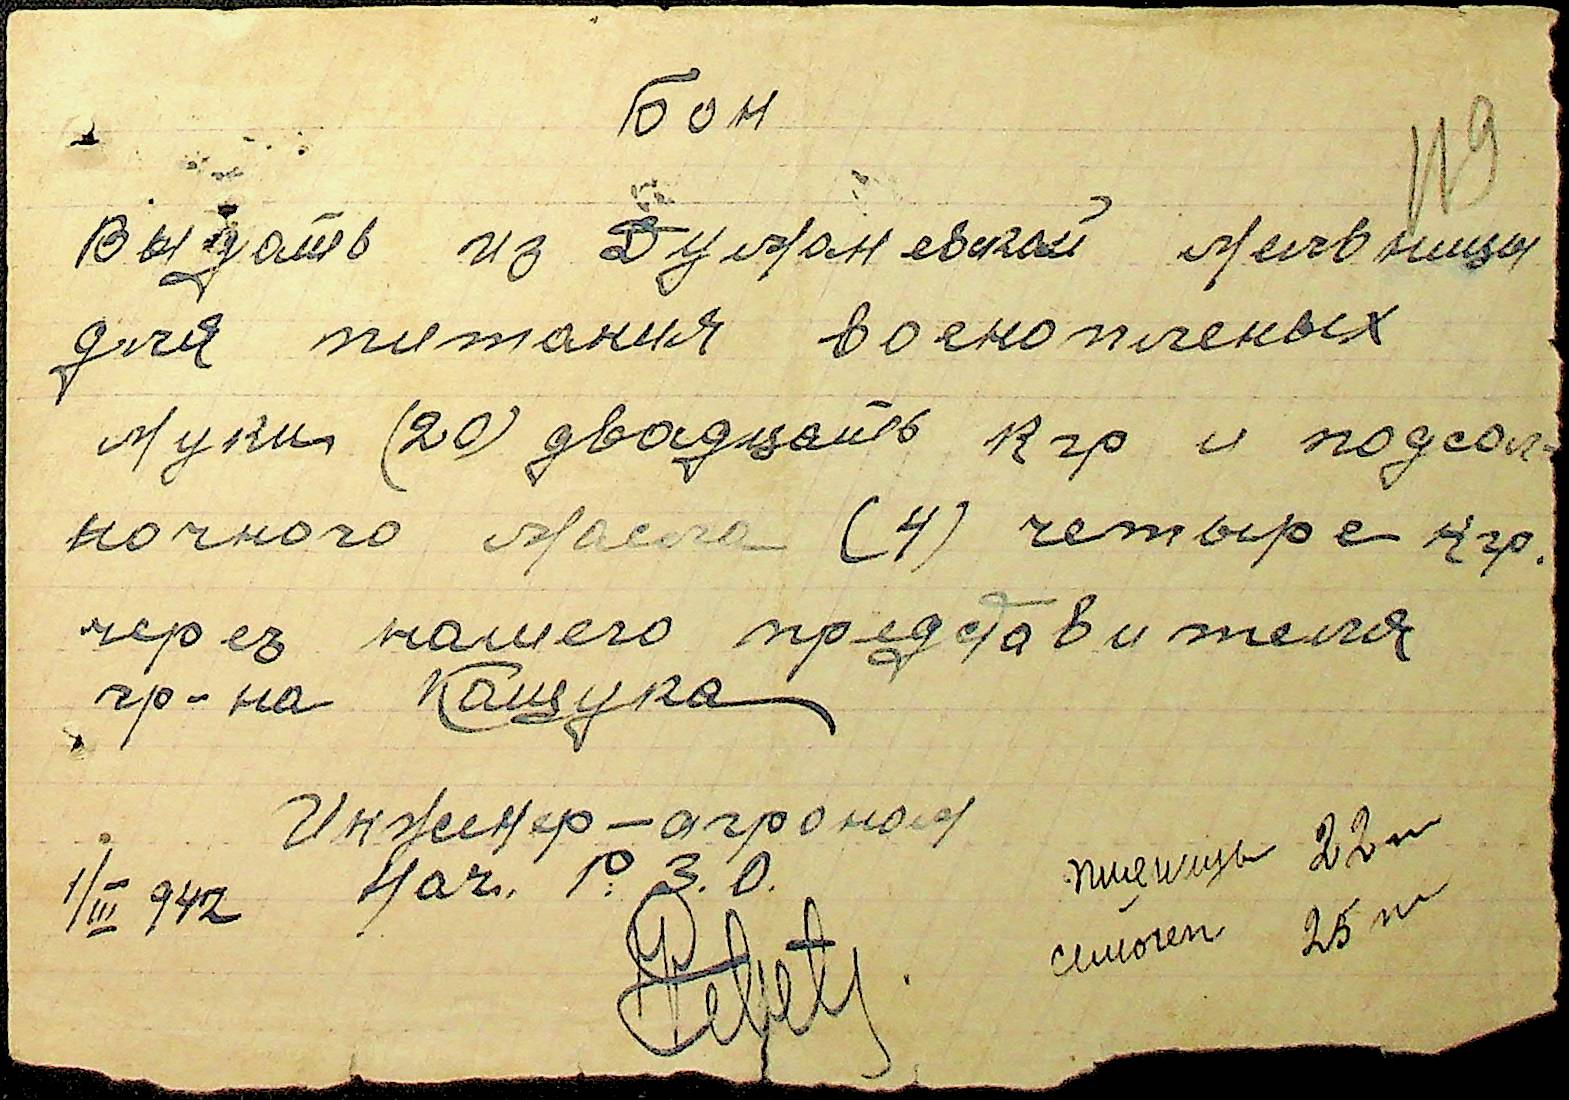 Бон
119
Выдать из Думаневской мельницы
для питания военопленых
муки (20) двадцать кгр и подсол-
ночного масла (4) четыре кгр.
через нашего представителя
гр-на Кащука
Инженер-агроном
1/III 942 Нач. Р. З. О.
пшеницы 22 п
25 п